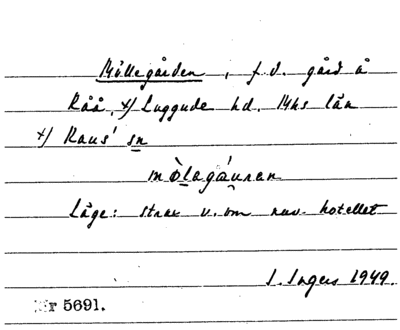 Möllegården, f.d. gård å
Råå, x) Luggude hd. Mhs län
x) Raus' sn
mò̀lagáu̯ran
Läge: strax v. om nuv. hotellet
I. Ingers 1949.
Nr 5691.